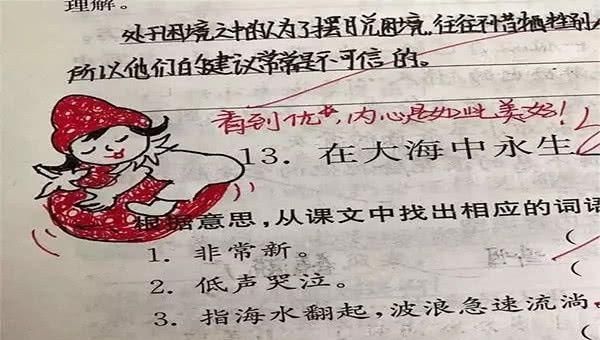 理解。
处于困境之中的人为了摆脱困境，往往不惜牺牲别
所以他们的建议常常是不可信的。
看到优+，内心是如此美好！
13. 在大海中永生
一、根据意思，从课文中找出相应的词语
1. 非常新。（
2. 低声哭泣。（
3. 指海水翻起，波浪急速流淌。